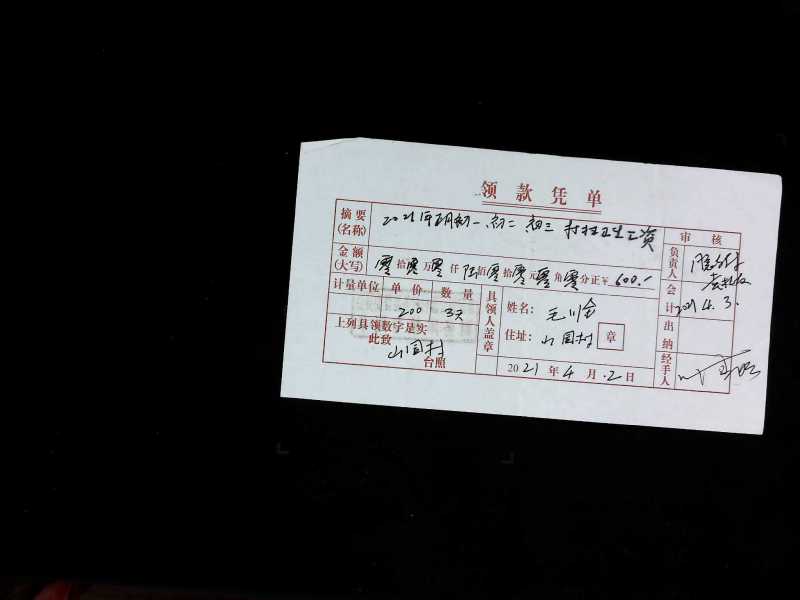 领款凭单
摘要(名称) 2021年正月初一、初二、初三 打扫卫生工资
审核
金额(大写) 零拾零万零仟陆佰零拾零元零角零分正¥600.-
负责人
计量单位 单价 数量
200 3天
具领人盖章
姓名:
住址:山园村 章
会计 2021.4.3.
上列具领数字是实
此致
山园村
台照
2021年4月2日
出纳
经手人